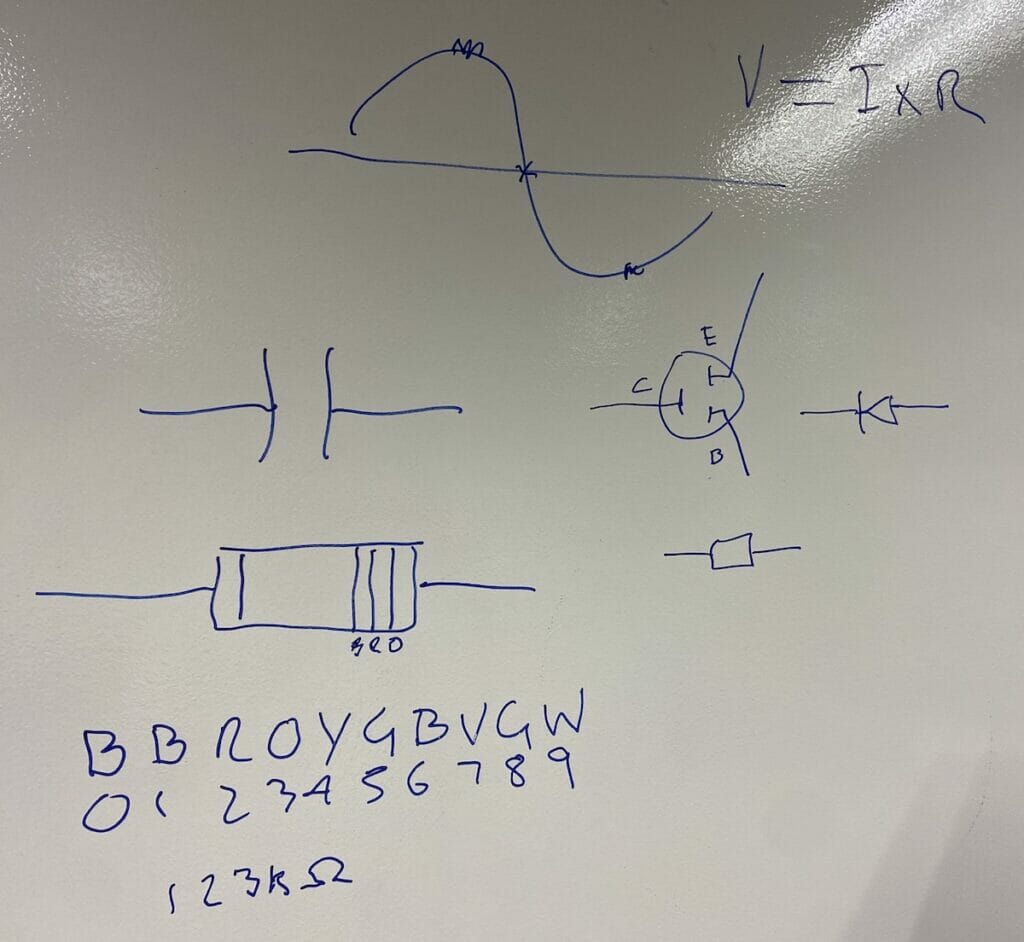 V = I x R
E
C
B
B R O
B B R O Y G B V G W
0 1 2 3 4 5 6 7 8 9
123kΩ